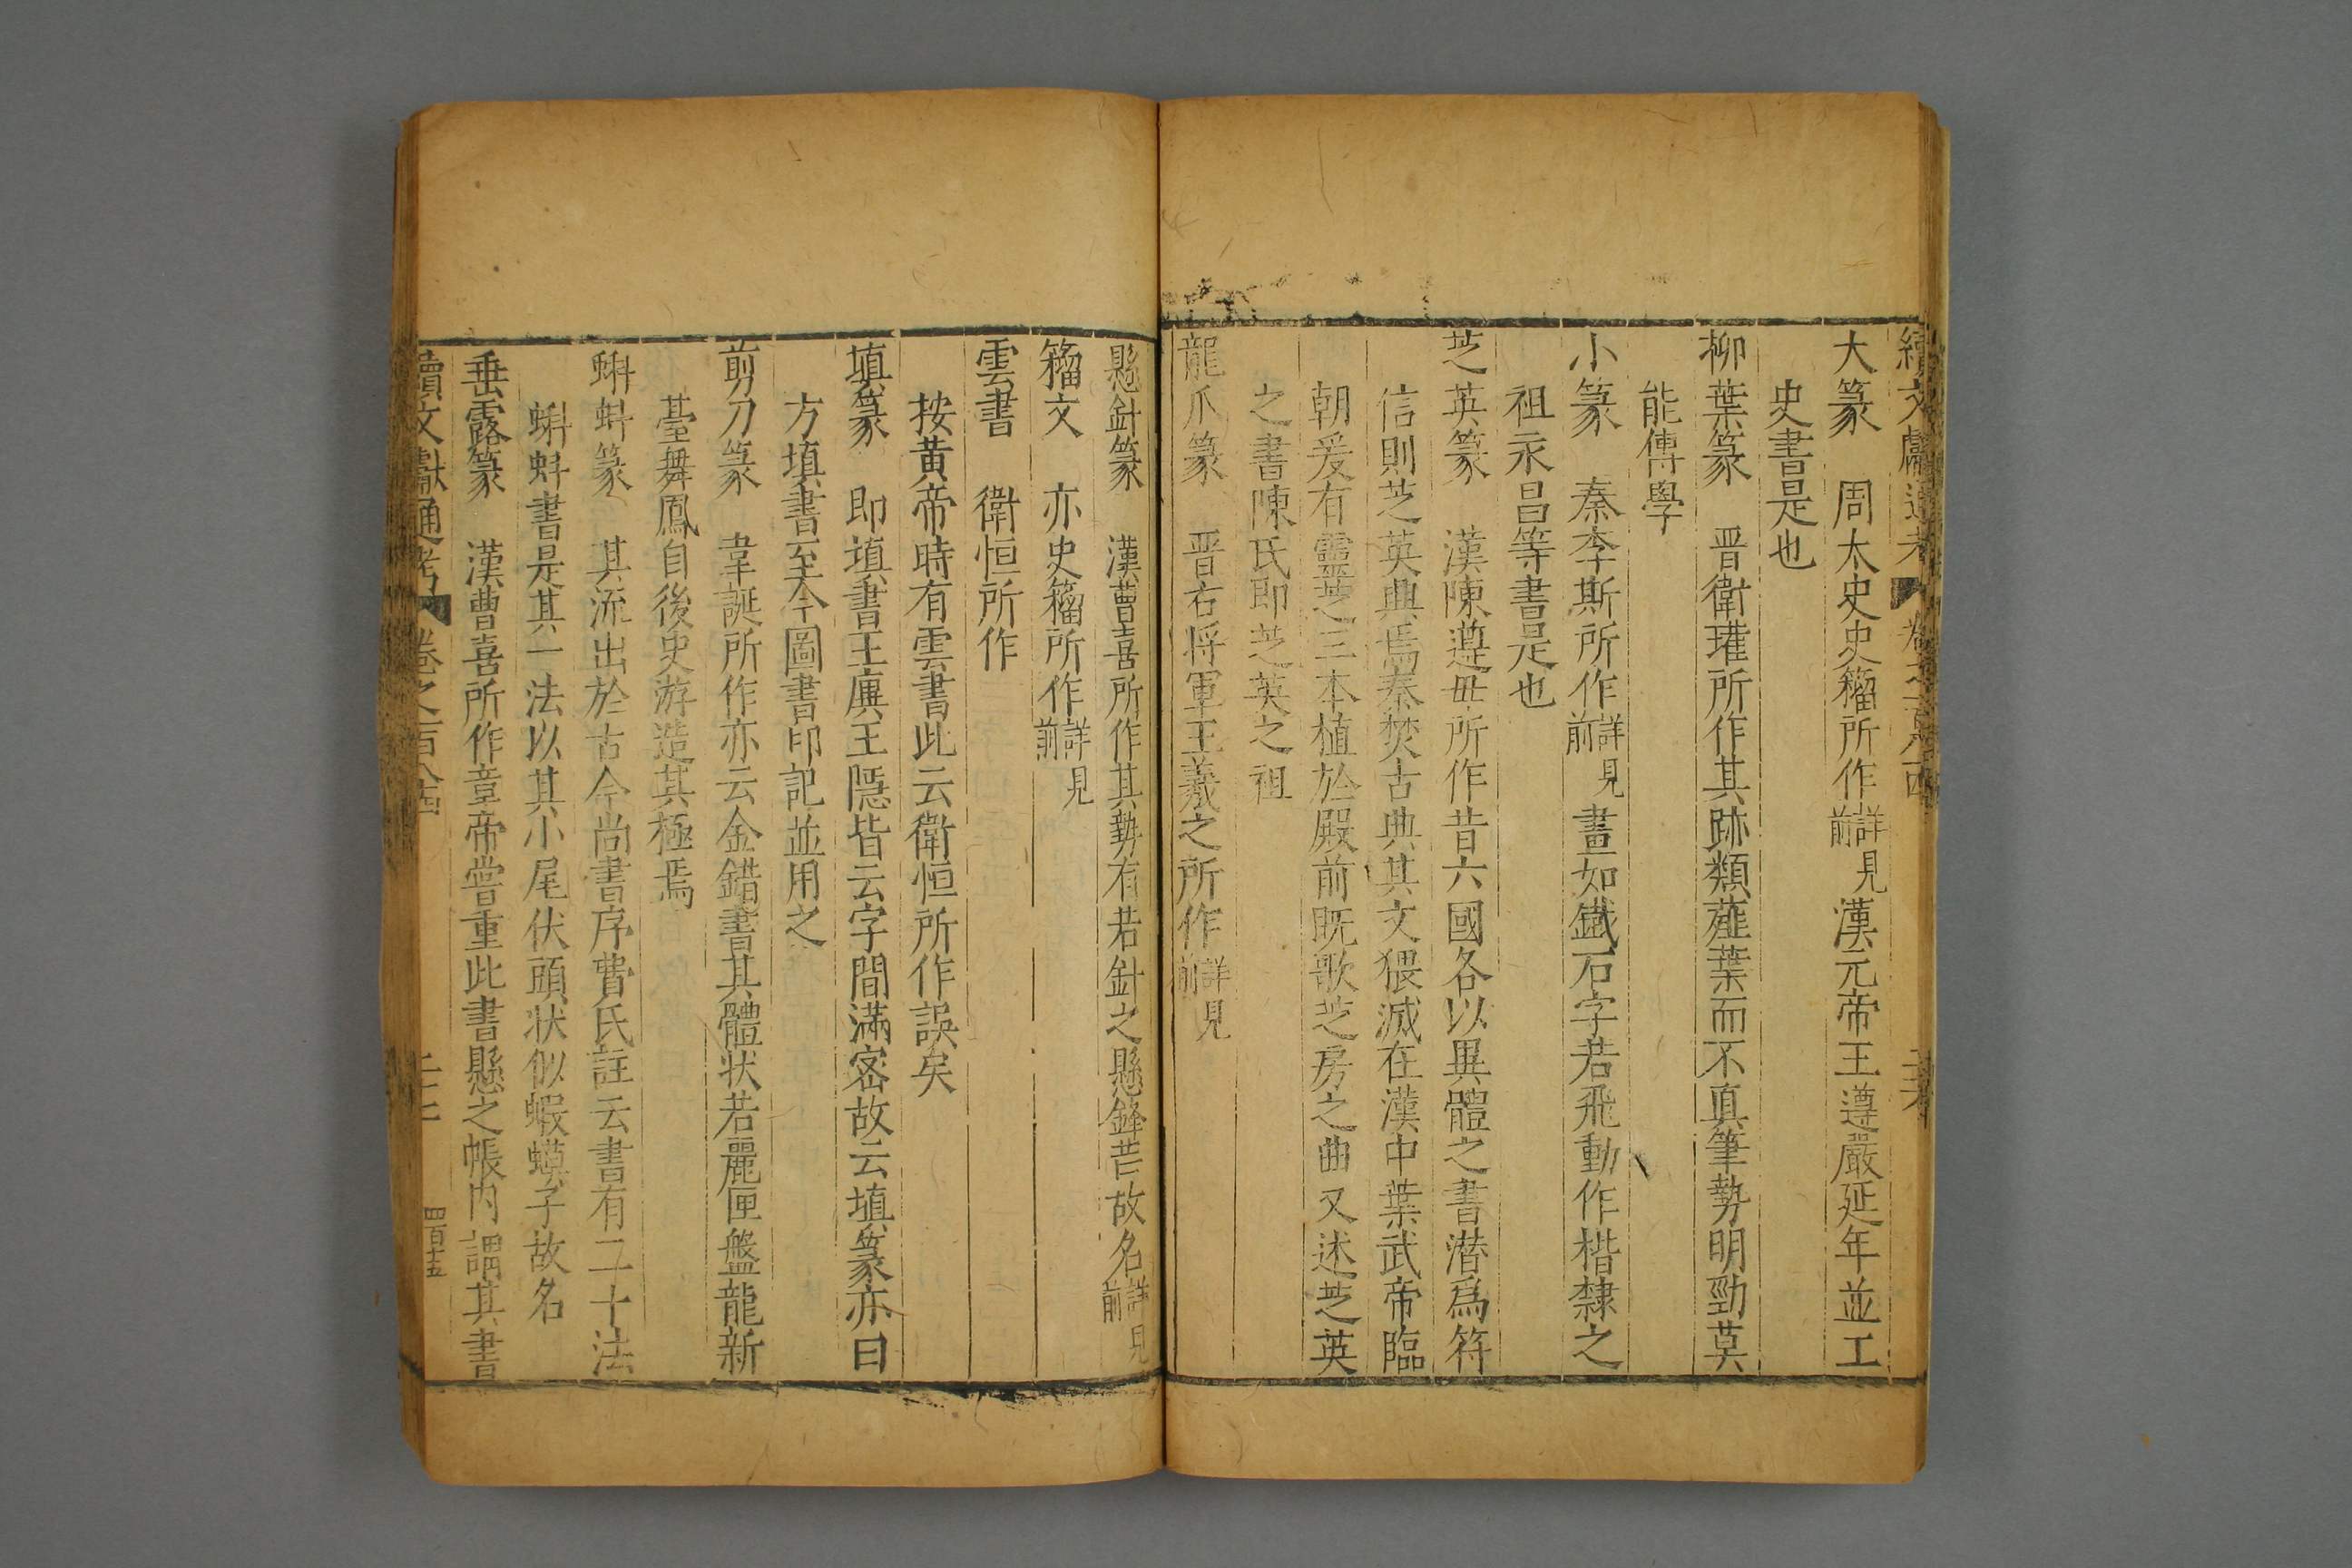 續文獻通考 卷之一百八十四
大篆 周太史史籀所作詳見前漢元帝王遵嚴延年並工
史書是也
柳葉篆 晋衛瓘所作其跡類薤葉而不真筆勢明勁莫
能傳學
小篆 秦李斯所作詳見前畫如鐵石字若飛動作楷隸之
祖永昌等書是也
芝英篆 漢陳遵毋所作昔六國各以異體之書潜爲符
信則芝英典焉秦焚古典其文猥滅在漢中葉武帝臨
朝爰有靈芝三本植於殿前既歌芝房之曲又述芝英
之書陳氏即芝英之祖
龍爪篆 晋右将軍王羲之所作詳見前
懸針篆 漢曹喜所作其勢有若針之懸鋒芒故名詳見前
籀文 亦史籀所作詳見前
雲書 衛恒所作
按黄帝時有雲書此云衛恒所作誤矣
填篆 即填書王廙王隱皆云字間滿密故云填篆亦曰
方填書至今圖書印記並用之
剪刀篆 韋誕所作亦云金錯書其體状若麗匣盤龍新
臺舞鳳自後史游造其極焉
蝌蚪篆 其流出於古今尚書序費氏註云書有二十法
蝌蚪書是其一法以其小尾伏頭状似蝦蟆子故名
垂露篆 漢曹喜所作章帝嘗重此書懸之帳内謂其書
續文獻通考 卷之一百八十四 二十七 四百十五